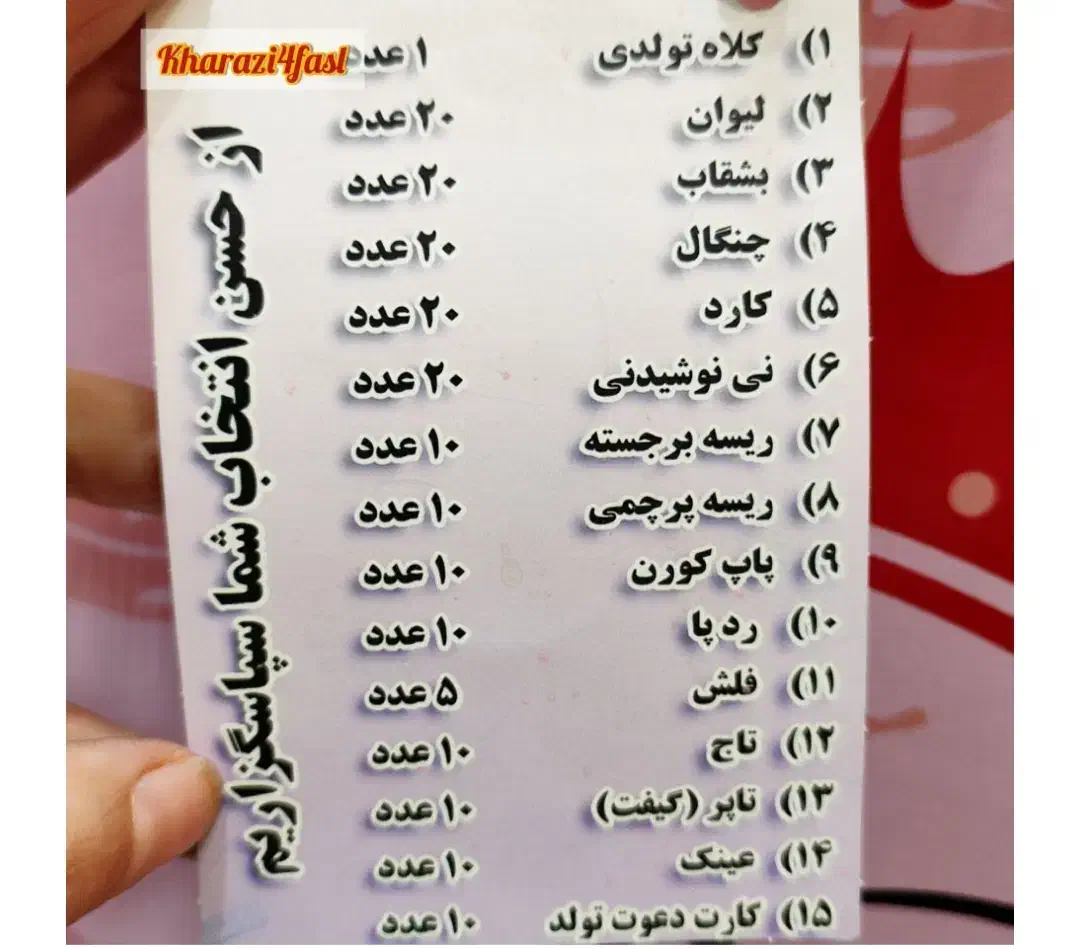 Kharazi4fasl
۱) کلاه تولدی ۱ عدد
۲) لیوان ۲۰ عدد
۳) بشقاب ۲۰ عدد
۴) چنگال ۲۰ عدد
۵) کارد ۲۰ عدد
۶) نی نوشیدنی ۲۰ عدد
۷) ریسه برجسته ۱۰ عدد
۸) ریسه پرچمی ۱۰ عدد
۹) پاپ کورن ۱۰ عدد
۱۰) رد پا ۱۰ عدد
۱۱) فلش ۵ عدد
۱۲) تاج ۱۰ عدد
۱۳) تاپر (گیفت) ۱۰ عدد
۱۴) عینک ۱۰ عدد
۱۵) کارت دعوت تولد ۱۰ عدد
از حسن انتخاب شما سپاسگزاریم